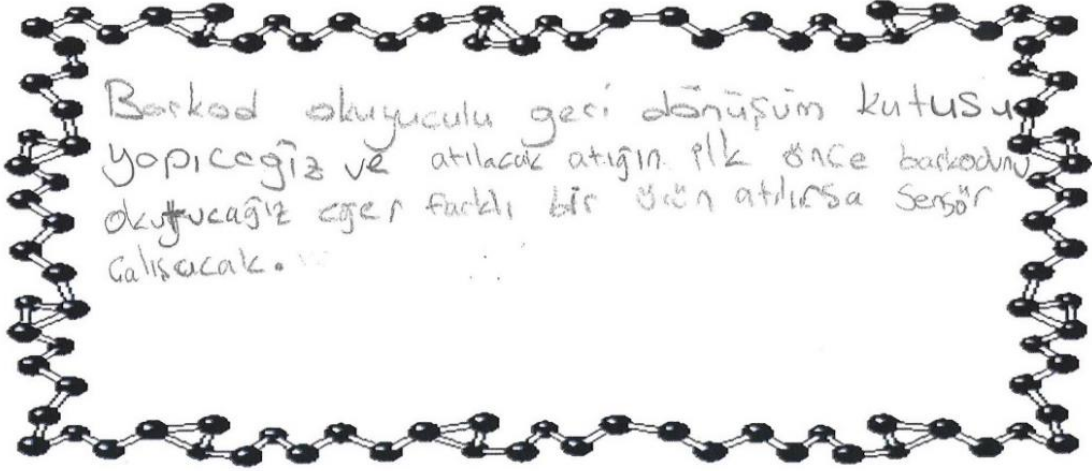 Barkod okuyuculu geri dönüşüm kutusu
yapıcağız ve atılacak atığın ilk önce barkodunu
okutucağız eğer farklı bir ürün atılırsa sensör
çalışacak.